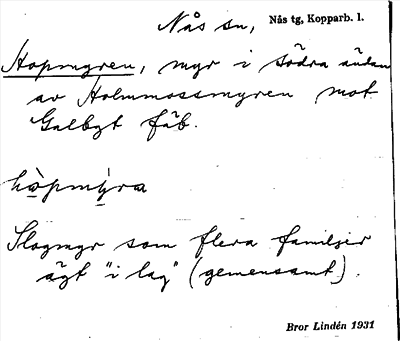 Nås sn, Nås tg, Kopparb. l.
Hopmyren, myr i södra ändan
av Holmmossmyren mot
Galbyt fäb.
hòpmýra
Slogmyr som flera familjer
ägt "i lag" (gemensamt).
Bror Lindén 1931